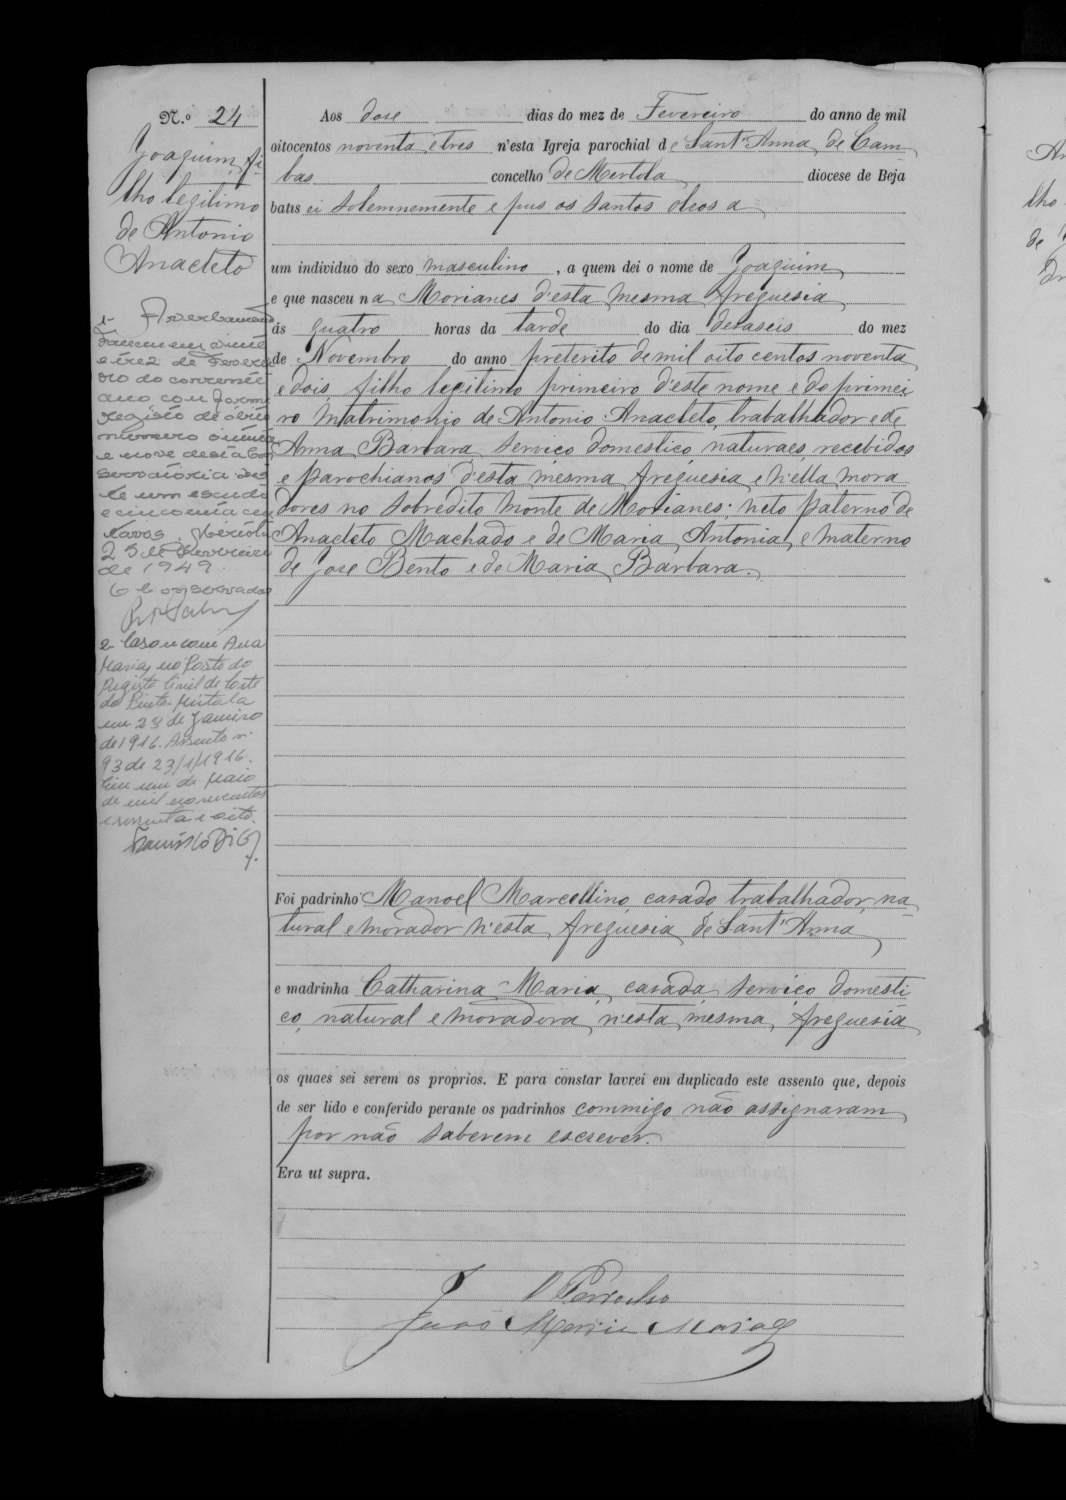 N.º 24
Joaquim, fi-
lho legitimo
de Antonio
Anacleto
Aos dose dias do mez de Fevereiro do anno de mil
oitocentos noventa e tres n'esta Igreja parochial de Sant'Anna de Cam-
bas concelho de Mertola diocese de Beja
batisei solemnemente e pus os santos oleos a
um individuo do sexo masculino, a quem dei o nome de Joaquim
e que nasceu na Morianes d'esta mesma freguesia
ás quatro horas da tarde do dia desaseis do mez
de Novembro do anno preterito de mil oito centos noventa
e dois, filho legitimo primeiro d'este nome e do primei-
ro matrimonio de Antonio Anacleto, trabalhador e de
Anna Barbara, serviço domestico, naturaes, recebidos
e parochianos d'esta mesma freguesia e n'ella mora
dores no sobredito monte de Morianes; neto paterno de
Anacleto Machado e de Maria Antonia, e materno
de Jose Bento e de Maria Barbara.
1- Averbamento
Faleceu em
e trez de Feverei
ro do corrente
ano conforme
registo de obito
numero
e nove desta Con
servatória
te um escudo
e cincoenta cen
tavos. Mértola
25 de Fevereiro
de 1949.
O Conservador
2- Casou com Ana
Maria, no Posto do
Registo Civil de Corte
do Pinto Mértola
em 23 de Janeiro
de 1916. Assento n.º
93 de 23/1/1916.
Em um de Maio
de mil novecentos
e sessenta e oito.
Foi padrinho Manoel Marcellino, casado trabalhador, na-
tural e morador n'esta freguesia de Sant'Anna
e madrinha Catharina Maria, casada, serviço domesti
co, natural e moradora n'esta mesma, freguesia
os quaes sei serem os proprios. E para constar lavrei em duplicado este assento que, depois
de ser lido e conferido perante os padrinhos commigo não assignaram
por não saberem escrever.
Era ut supra.
O Parrocho
João Maria